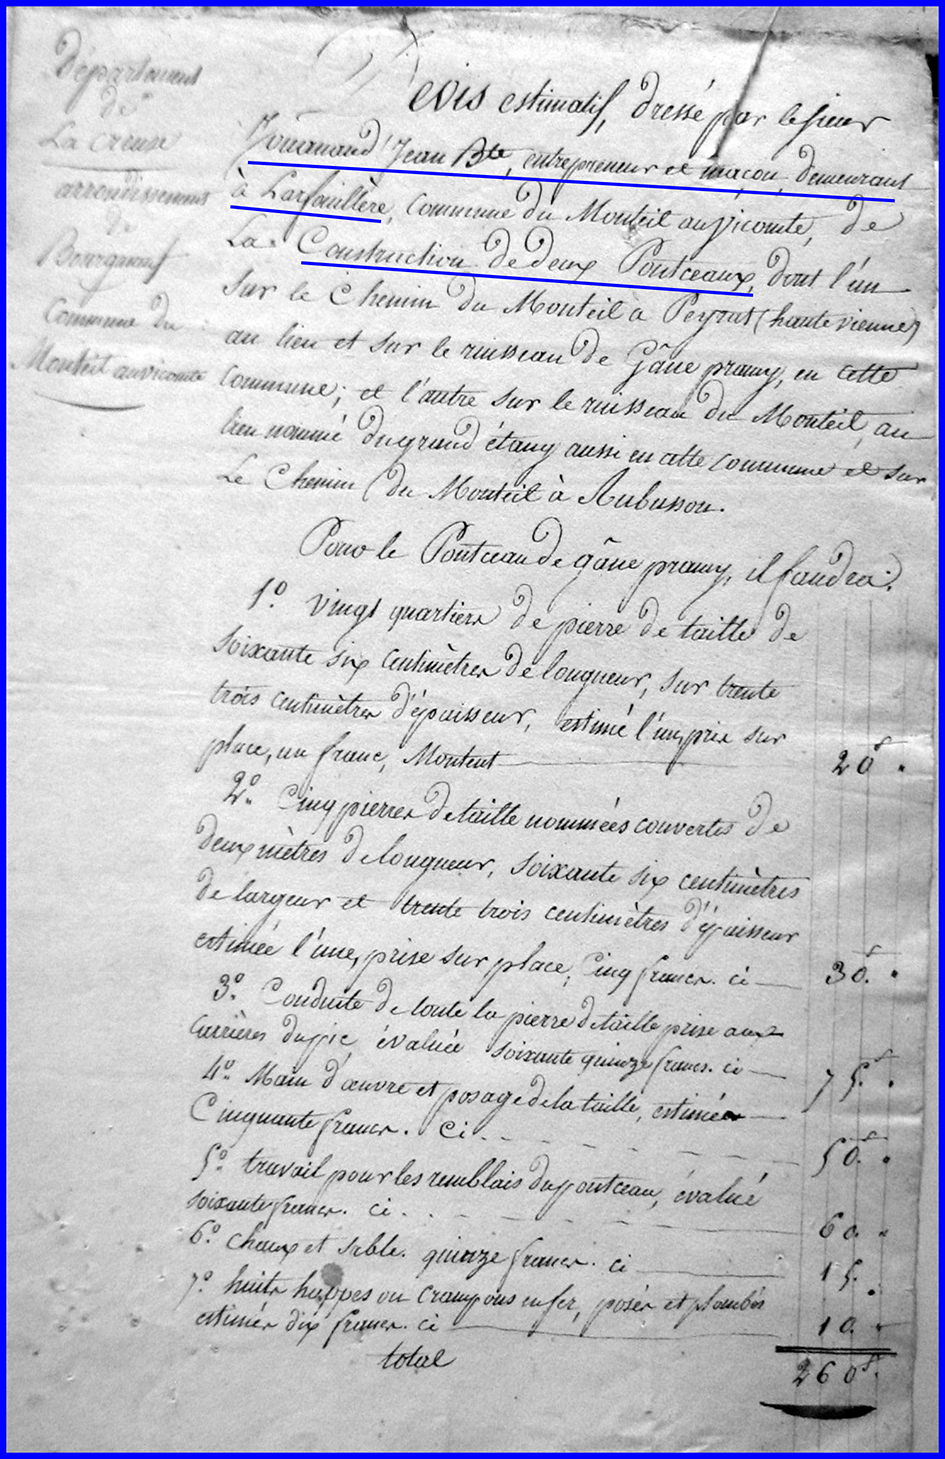 Département
de
La Creuse
arrondissement
de
Bourganeuf
Commune du
Monteil au vicomte
Devis estimatif, dressé par le sieur
Jouanaud Jean Bte, entrepreneur et maçon, demeurant
à Larfouillère, Commune du Monteil au vicomte, de
La Construction de deux Pontceaux, dont l'un
sur le Chemin du Monteil à Peyrat (haute vienne)
au lieu et sur le ruisseau de Gâne pramy, en cette
Commune; et l'autre sur le ruisseau du Monteil, au
lieu nommé du grand étang aussi en cette commune et sur
Le Chemin du Monteil à Aubusson.
Pour le Pontceau de gâne pramy, il faudra:
1o. vingt quartiers de pierre de taille de
soixante six centimètres de longueur, sur trente
trois centimètres d'épaisseur, estimé l'un, pris sur
place, un franc, Montent 20f.
2o. Cinq pierres de taille nommées couvertes de
deux mètres de longueur, soixante six centimètres
de largeur et trente trois centimètres d'épaisseur
estimée l'une, prise sur place, Cinq francs. ci 30f.
3o. Conduite de toute la pierre de taille prise aux
carrières du pic, évaluée soixante quinze francs. ci 75f.
4o. Main d'œuvre et posage de la taille, estimées
Cinquante francs. Ci 50f.
5o. travail pour les remblais du pontceau, évalué
soixante francs. ci 60.
6o. chaux et sable. quinze francs. ci 15.
7o. huits happes ou crampons en fer, posés et plombés
estimés dix francs. ci 10.
total 260f.